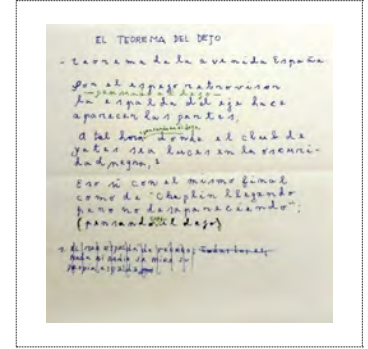 EL TEOREMA DEL DEJO
- teorema de la avenida España
Por el espejo retrovisor
la espalda del eje hace
aparecer las partes,
a tal hora donde el club de
yates son luces en la oscuri-
dad negra,
Eso sí con el mismo final
como de "Chaplin llegando
pero no desapareciendo";
(pensando el dejo)
nada ni nadie se mira su
propia espalda